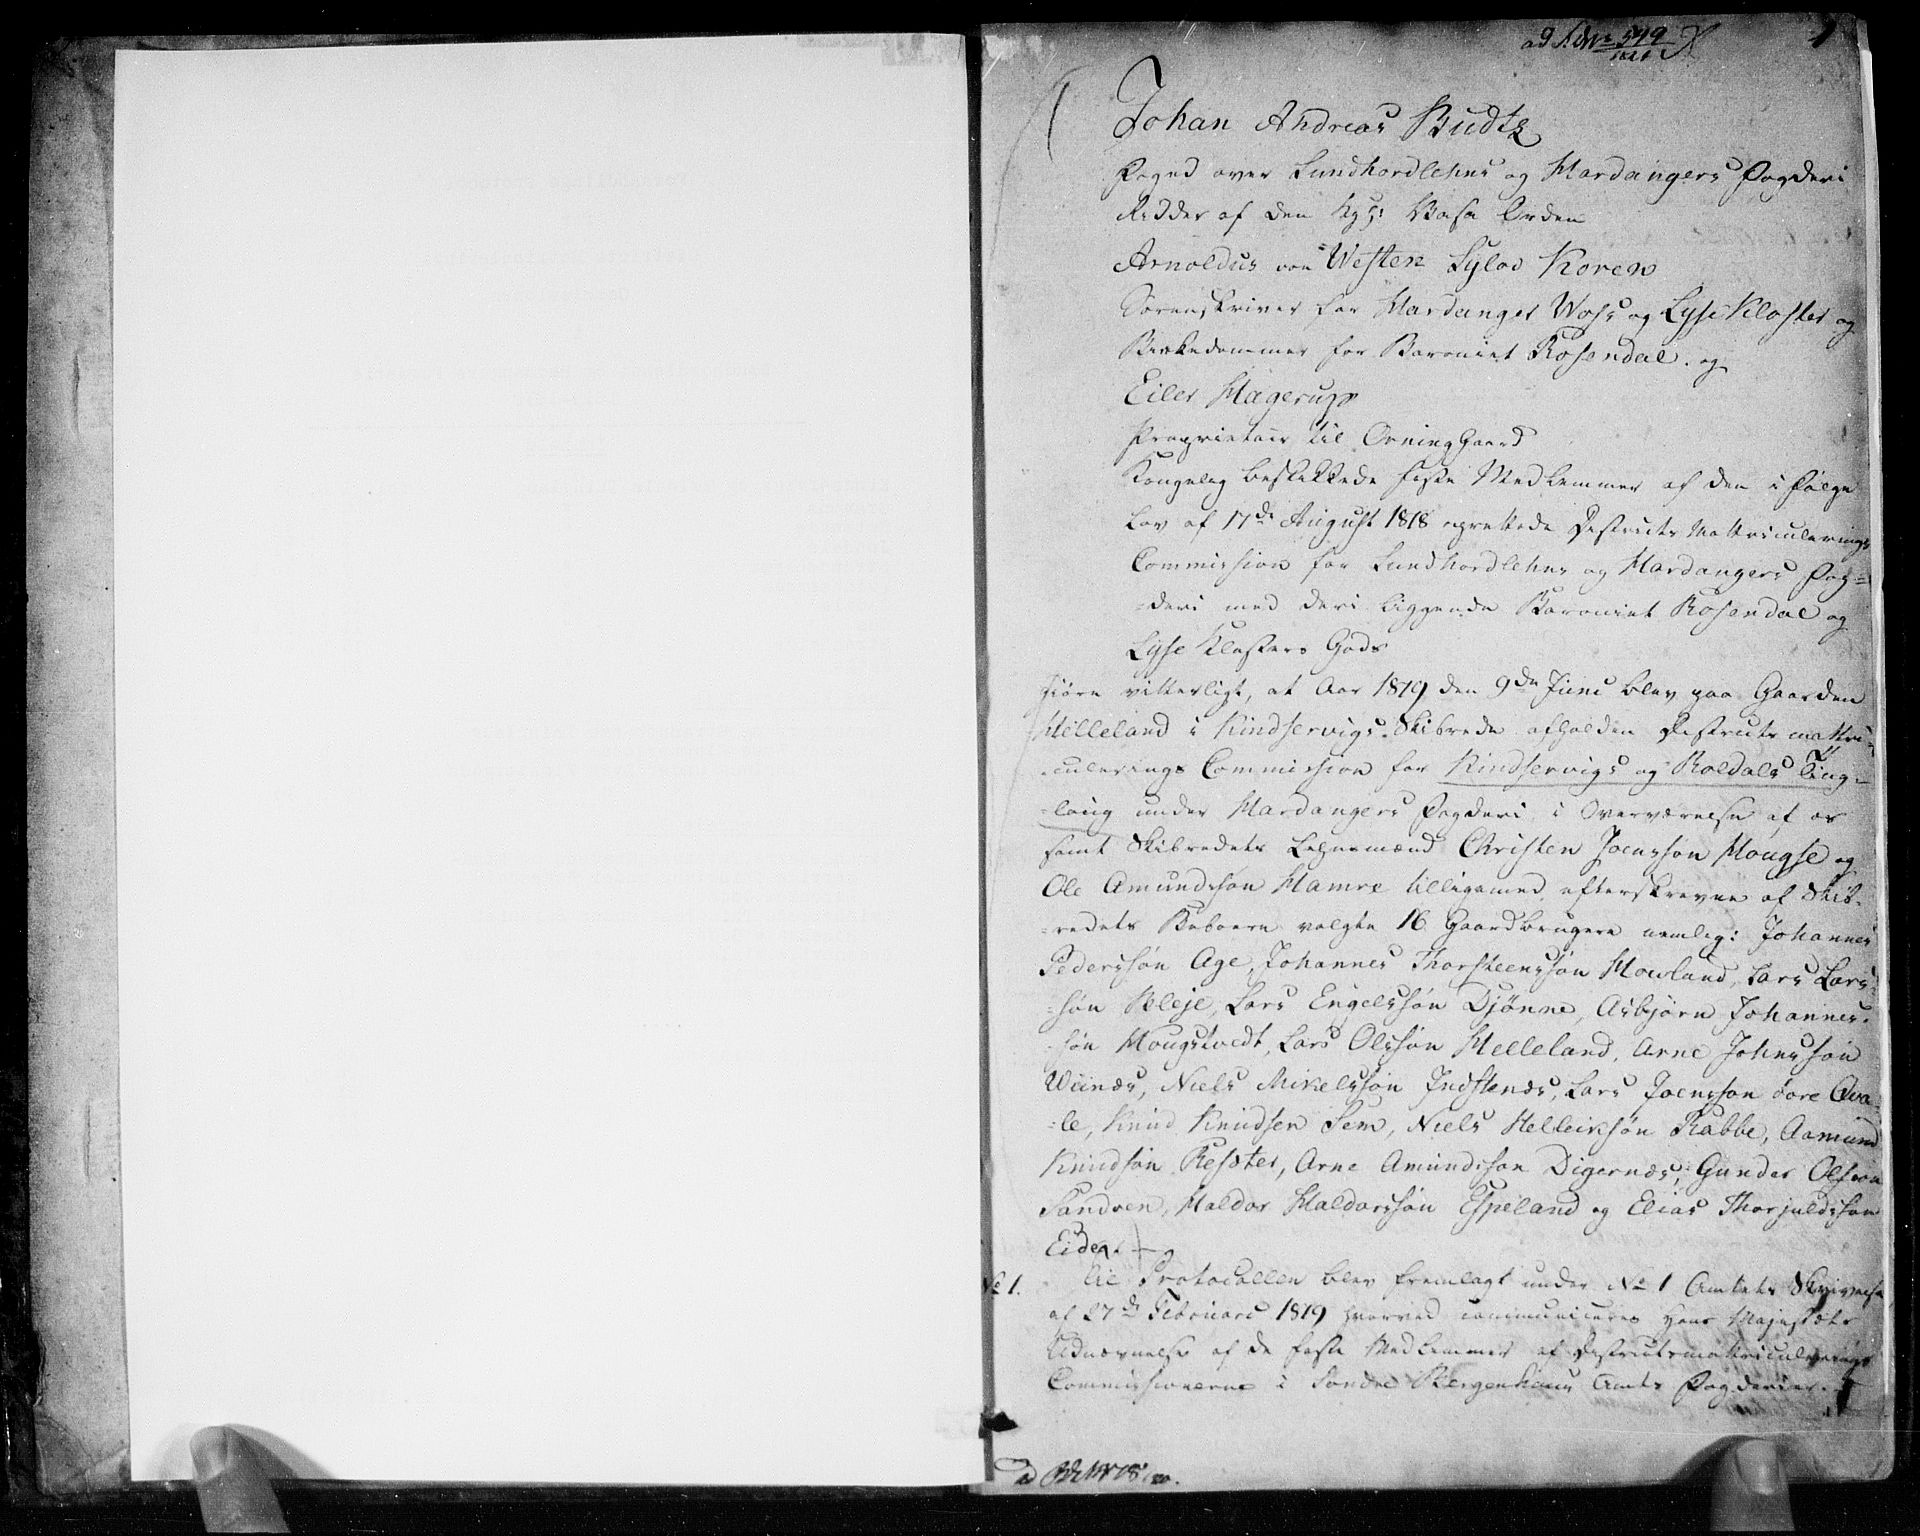 Johan Andreas Budtz
Foged over Sundhordlehns og Hardangers Fogderi
Ridder af den Kgl: Vasa Orden
Arnoldus von Westen Sylow Koren
Sorenskriver for Hardanger Woss og Lyse Kloster og
Birkedommer for Baroniet Rosendal. og
Eiler Hagerup
Proprietair til Orninggaard
Kongelig beskikkede faste Medlemmer af den i Følge
Lov af 17de August 1818 oprettede Destricts Mattriculerings
Commission for Sundhordlehns og Hardangers Fog=
=deri med deri liggende Baroniet Rosendal og
Lyse Klosters Gods
Giøre vitterligt, at Aar 1819 den 9de Juni blev paa Gaarden
Helleland i Kindservigs Skibrede afholden Destricts mattri=
=culerings Commission for Kindservigs og Roldals Ting=
=laug under Hardangers Fogderi i Overværelse af os
samt Skibredets Lehnsmænd Christen Joensson Hougse og
Ole Amundsson Hamre tilligemed efterskrevne af Skib=
=redets Beboere valgte 16 Gaardbrugere nemlig: Johannes
Pederssøn Age, Johannes Thorsteenssøn Howland, Lars Lars=
=søn Bleje, Lars Engelssøn Djønne, Asbjørn Johannes=
=søn Hougstvedt, Lars Olssøn Helleland, Arne Johnssøn
Wiinæs, Niels Mikelssøn Indstenæs, Lars Joensson øvre Qva=
=le, Knud Knudsen Sem, Niels Helleiksøn Rabbe, Aamund
Knudsøn Resæter, Arne Amundsson Digernæs, Gunder Olsson
Sandven, Haldor Haldorssøn Espeland og Elias Thorjuldsson
Eide.
No 1. Til Protocollen blev fremlagt under No 1 Amtets Skrivelse
af 27de Februari 1819 hvorved communiceres Hans Majestæts
Udnævnelse af de faste Medlemmer af Destrictsmattriculerings
Commissionerne i Søndre Bergenhuus Amts Fogderier.